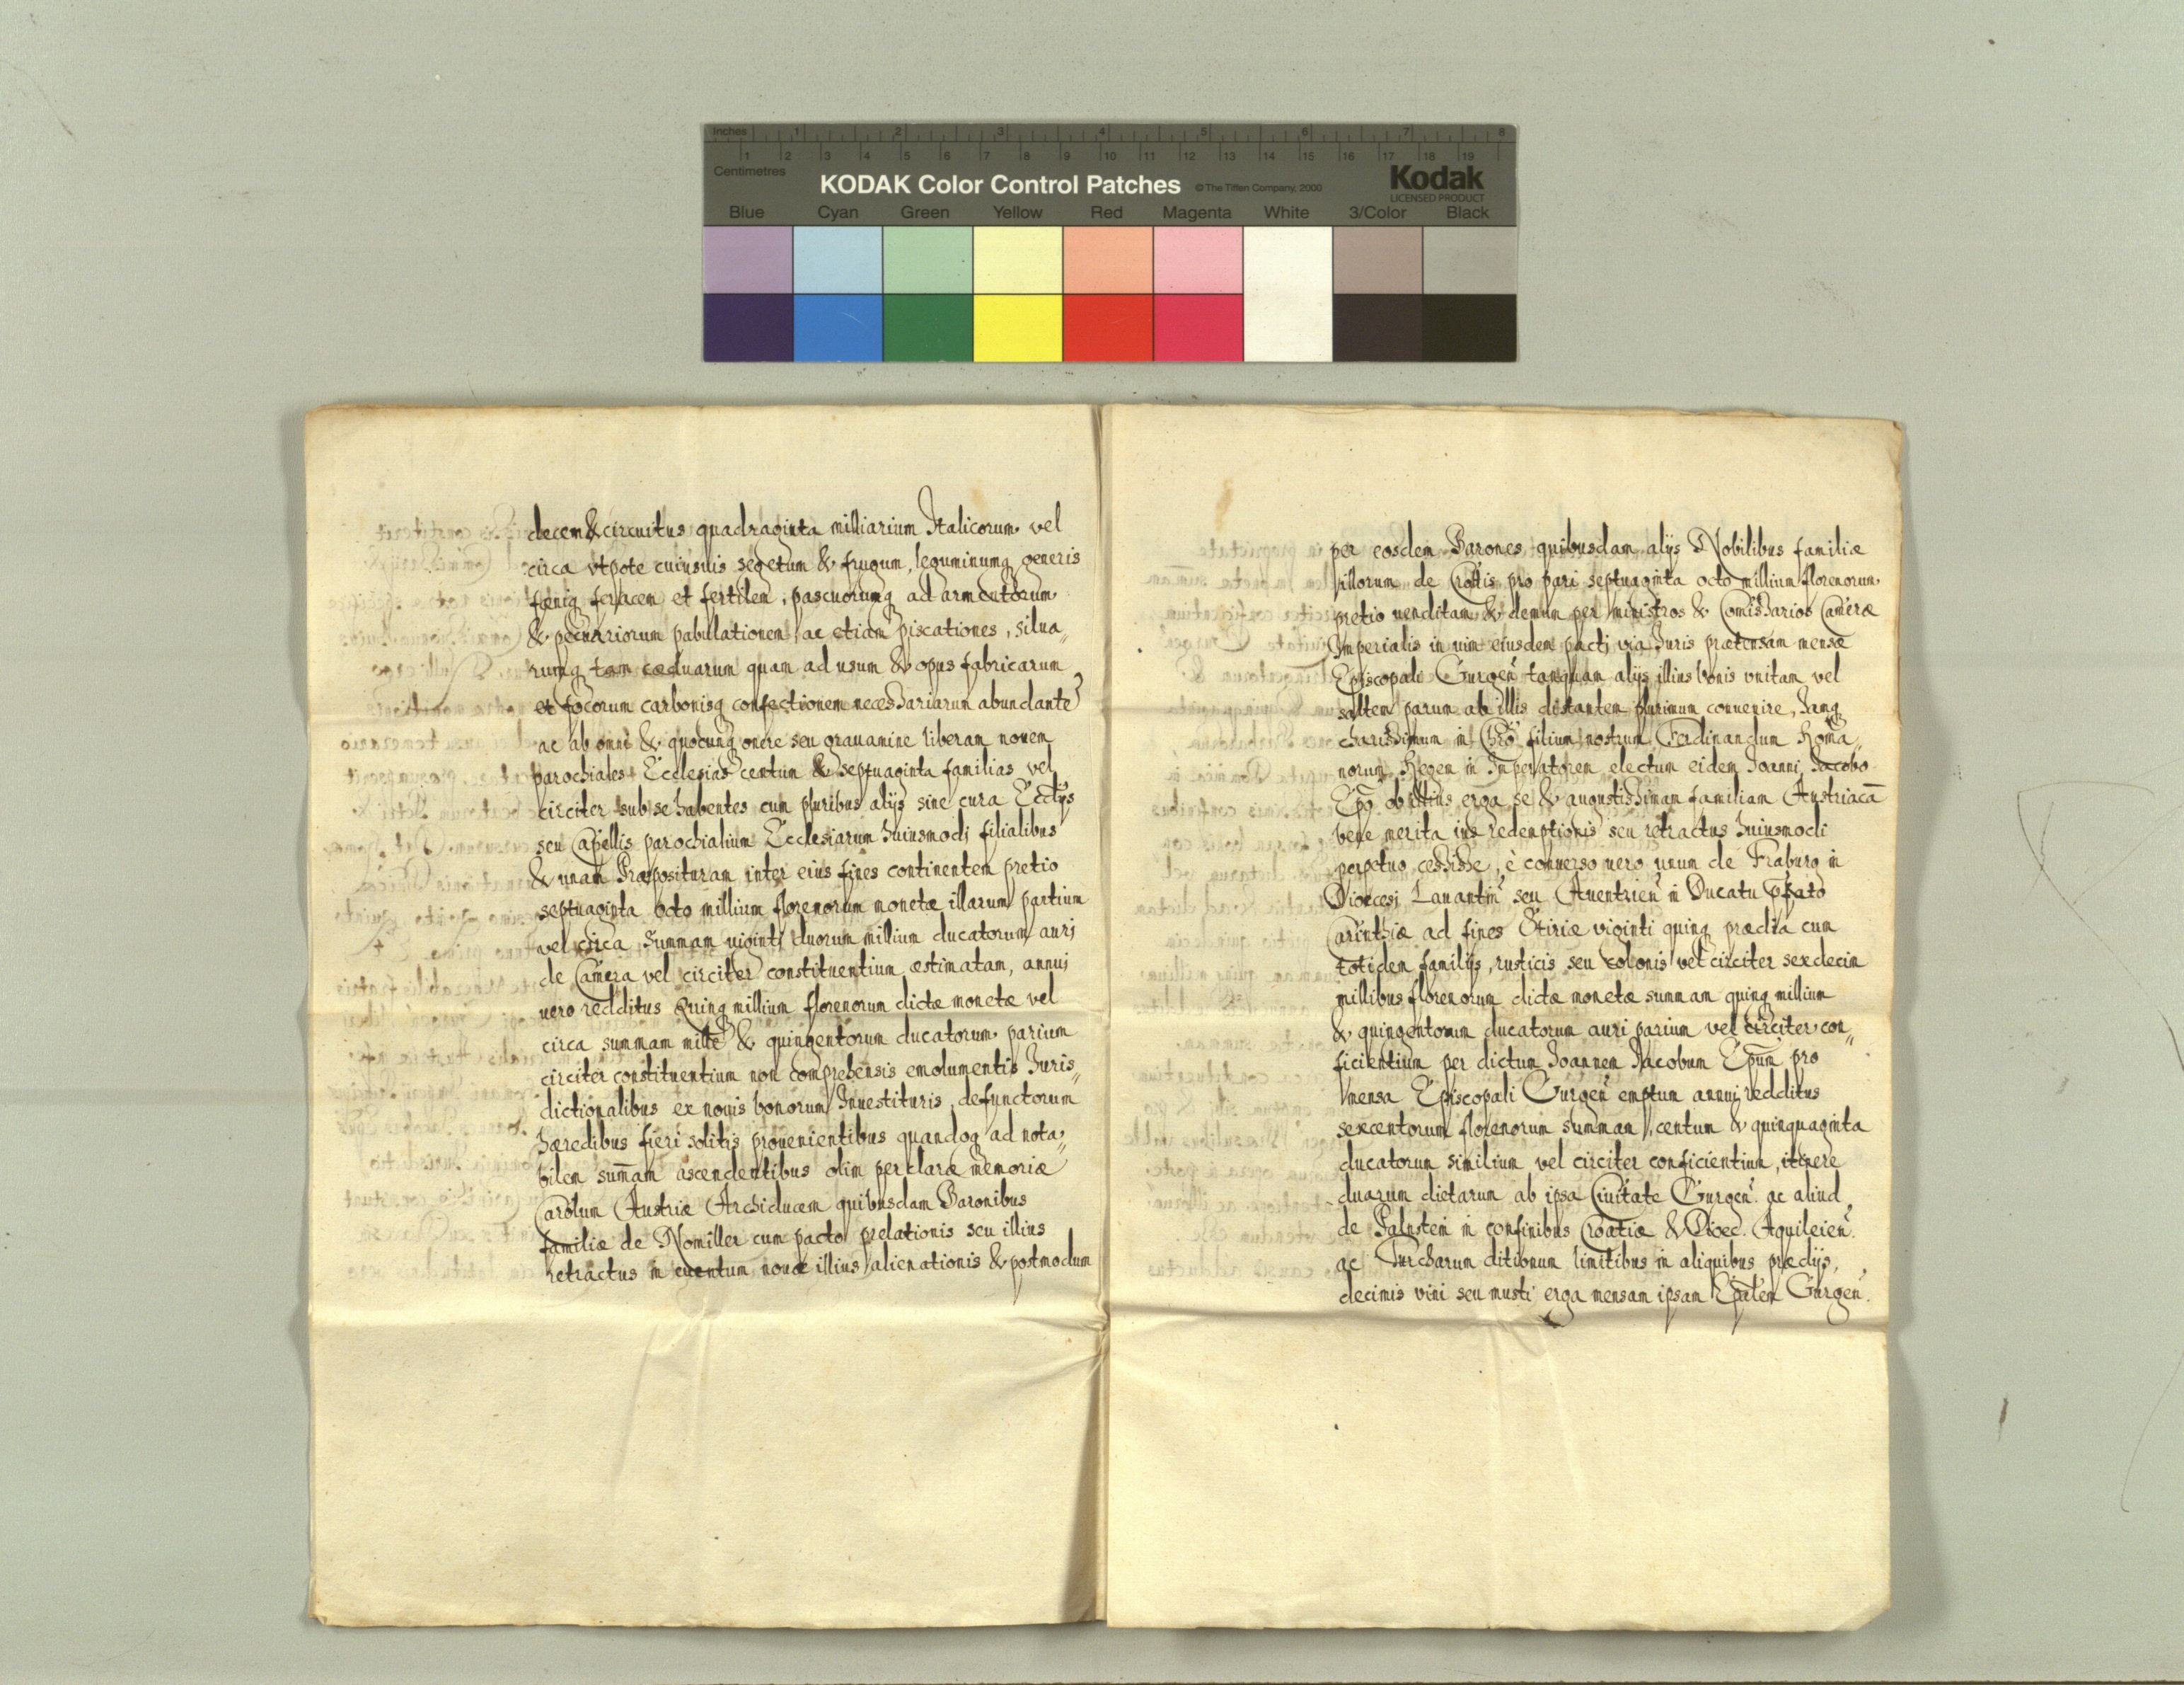 Inches 1 2 3 4 5 6 7 8
1 2 3 4 5 6 7 8 9 10 11 12 13 14 15 16 17 18 19
Centimetres
KODAK Color Control Patches © The Tiffen Company, 2000 Kodak
LICENSED PRODUCT
Blue Cyan Green Yellow Red Magenta White 3/Color Black
decem & circuitus quadraginta milliarium Italicorum vel
circa utpote cuiusuis segetum & frugum, leguminumq generis
fœniq feracem et fertilem, pascuorumq ad armentorum
& pecuariorum pabulationem ac etiam piscationes, silua„
rumq tam cæduarum quam ad usum & opus fabricarum
et focorum carbonisq confectionem necessariarum abundante
ac ab omni & quocunq onere seu grauamine liberam nouem
parochiales Ecclesias centum & septuaginta familias vel
circiter sub se habentes cum pluribus alijs sine cura Eccłijs
seu Capellis parochialium Ecclesiarum huiusmodj filialibus
& unam Præposituram inter eius fines continentem pretio
septuaginta octo millium florenorum monetæ illarum partium
vel circa summam uigintj duorum millium ducatorum aurj
de Camera vel circiter constituentium æstimatam, annuj
uero redditus quinq millium florenorum dictæ monetæ vel
circa summam mille & quingentorum ducatorum parium
circiter constituentium non comprehensis emolumentis Juris„
dictionalibus ex nouis bonorum Inuestituris, defunctorum
hæredibus fieri solitis prouenientibus quandoq ad nota„
bilem sum̄am ascendentibus olim per claræ memoriæ
Carolum Austriæ Archiducem quibusdam Baronibus
familiæ de Nomiller cum pacto prelationis seu illius
retractus in euentum nouæ illius alienationis & postmodum
per eosdem Barones quibusdam alijs Nobilibus familiæ
illorum de Crottis pro pari septuaginta octo millium florenorum
pretio uenditam & demum per ministros & Comissarios Cameræ
Imperialis in uim eiusdem pactj via Juris prætensam mensæ
Episcopali Gurgen̄ tanquam alijs illius bonis vnitam vel
saltem parum ab illis distantem plurimum conuenire, Jamq
charissimum in Chr̄o filium nostrum Ferdinandum Roma„
norum Regem in Imperatorem electum eidem Joanni Jacobo
Ep̄o ob illius erga se & augustissimam familiam Austriacā
bene merita ius redemptionis seu retractus huiusmodi
perpetuo cessisse, è conuerso uero unum de Fraburg in
Diœcesi Lauantin̄ seu Auentrien̄ in Ducatu p̄fato
Carinthiæ ad fines Stiriæ viginti quinq prædia cum
totidem familijs, rusticis seu colonis vel circiter sexdecim
millibus florenorum dictæ monetæ summam quinq millium
& quingentorum ducatorum auri parium vel circiter con„
ficientium per dictum Joannem Jacobum Ep̄um pro
mensa Episcopali Gurgen̄ emptum annuj redditus
sexcentorum florenorum summam centum & quinquaginta
ducatorum similium vel circiter conficientium, itinere
duarum dietarum ab ipsa Ciuitate Gurgen̄. ac aliud
de in confinibus Croatiæ & Diœc. Aquileien̄.
ac Turcharum ditionum limitibus in aliquibus prædijs,
decimis vini seu musti erga mensam ipsam Ep̄alem Gurgen̄.